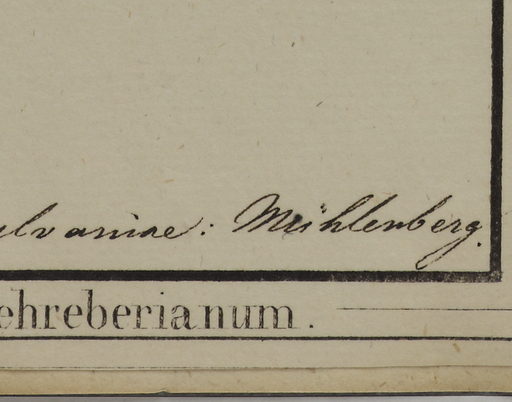 lvaniae: Mühlenberg.
ehreberianum.